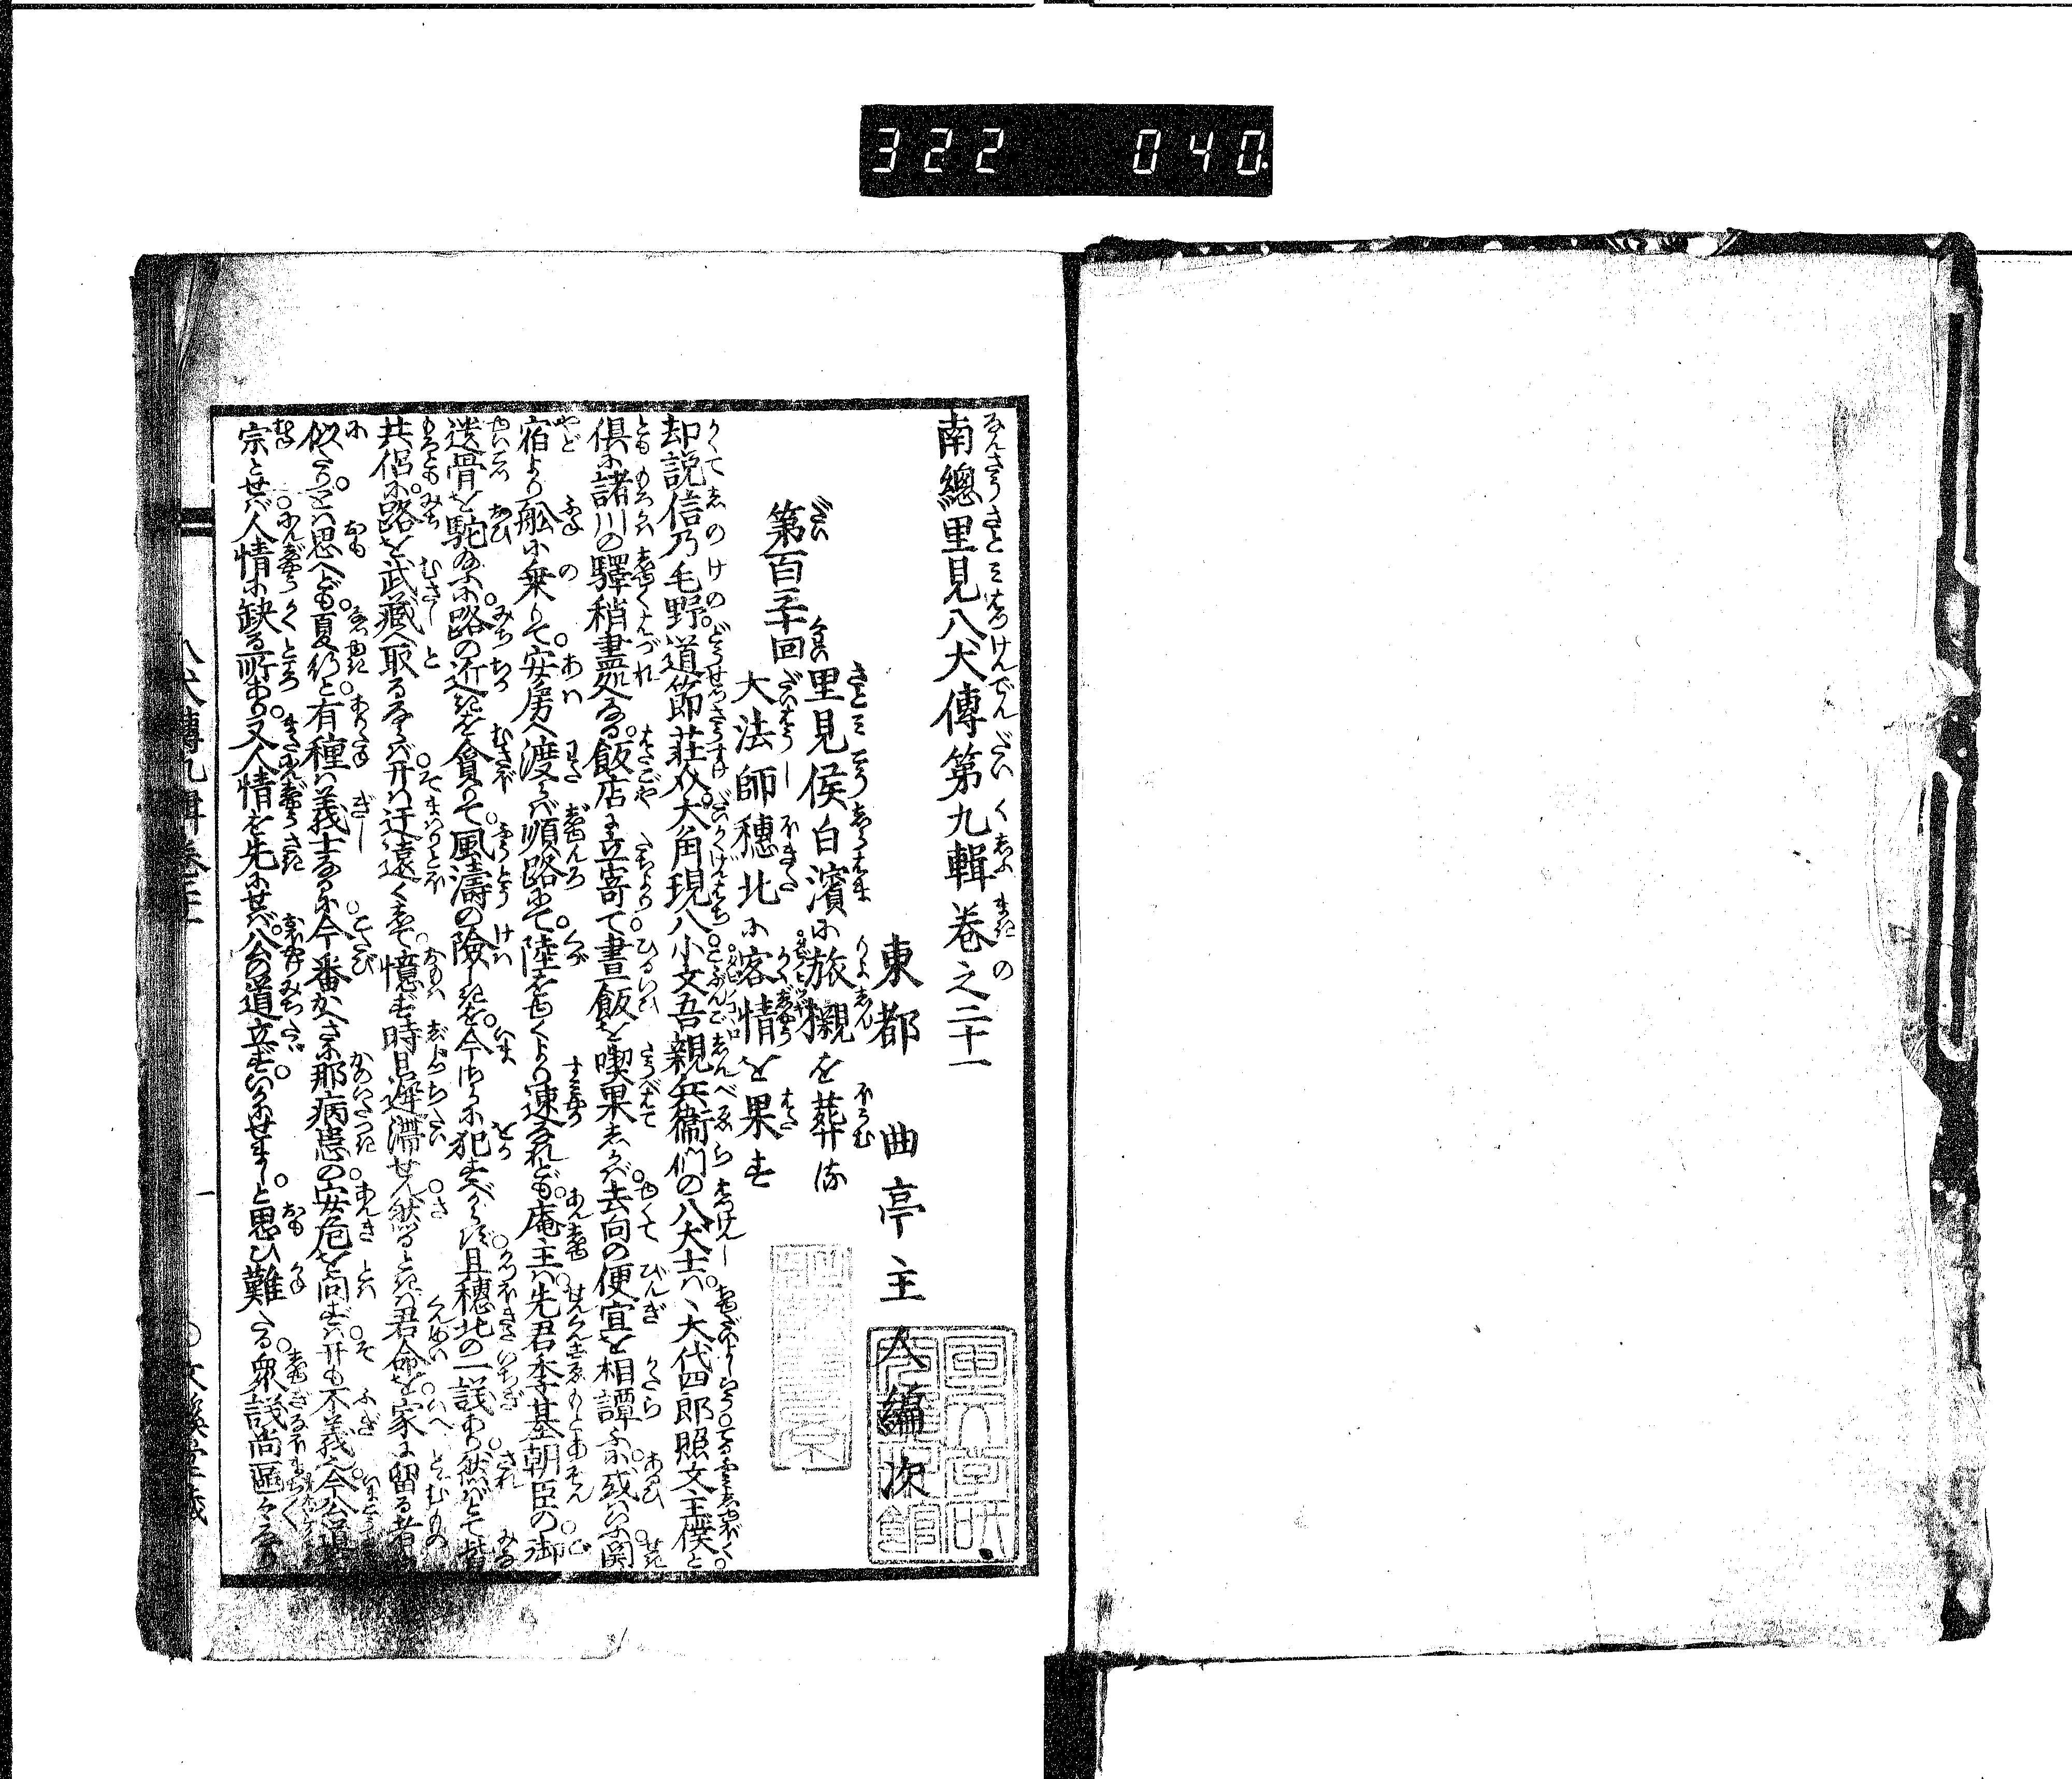 322 040
南總里見八犬傳第九輯卷之二十一
東都 曲亭主人編次
第百二十回
里見侯白濱に旅櫬を葬る
大法師穗北に客情を果す
却説信乃毛野道節莊介大角現八小文吾親兵衞們の八犬士ハ、大代四郎照文主僕と
倶に諸川の驛稍盡処なる飯店に立寄て晝飯を喫果しかバ去向の便宜を相譚ふに或ハいふ関
宿より舩に乗りて安房へ渡らバ順路にて陸をゆくより速なれども庵主ハ先君季基朝臣の御
遺骨を駝給ふに路の近きを貪りて風濤の險しきを今さらに犯すべからず且穗北の一議あり然バとて皆
共侶に路を武藏へ取るならバ开ハ迂遠くして憶ず時日遲滯せん然るときハ君命を家に留る者に
似たりとハ思へども夏行と有種ハ義士なるに今番かへさに那病患の安危を問ずハ开も不義也今公道を
宗とせバ人情に缺る所あり又人情を先にせバ公の道立ずいかにせましと思ひ難たる衆議尚區々なり
八犬傳九輯卷二十一
一